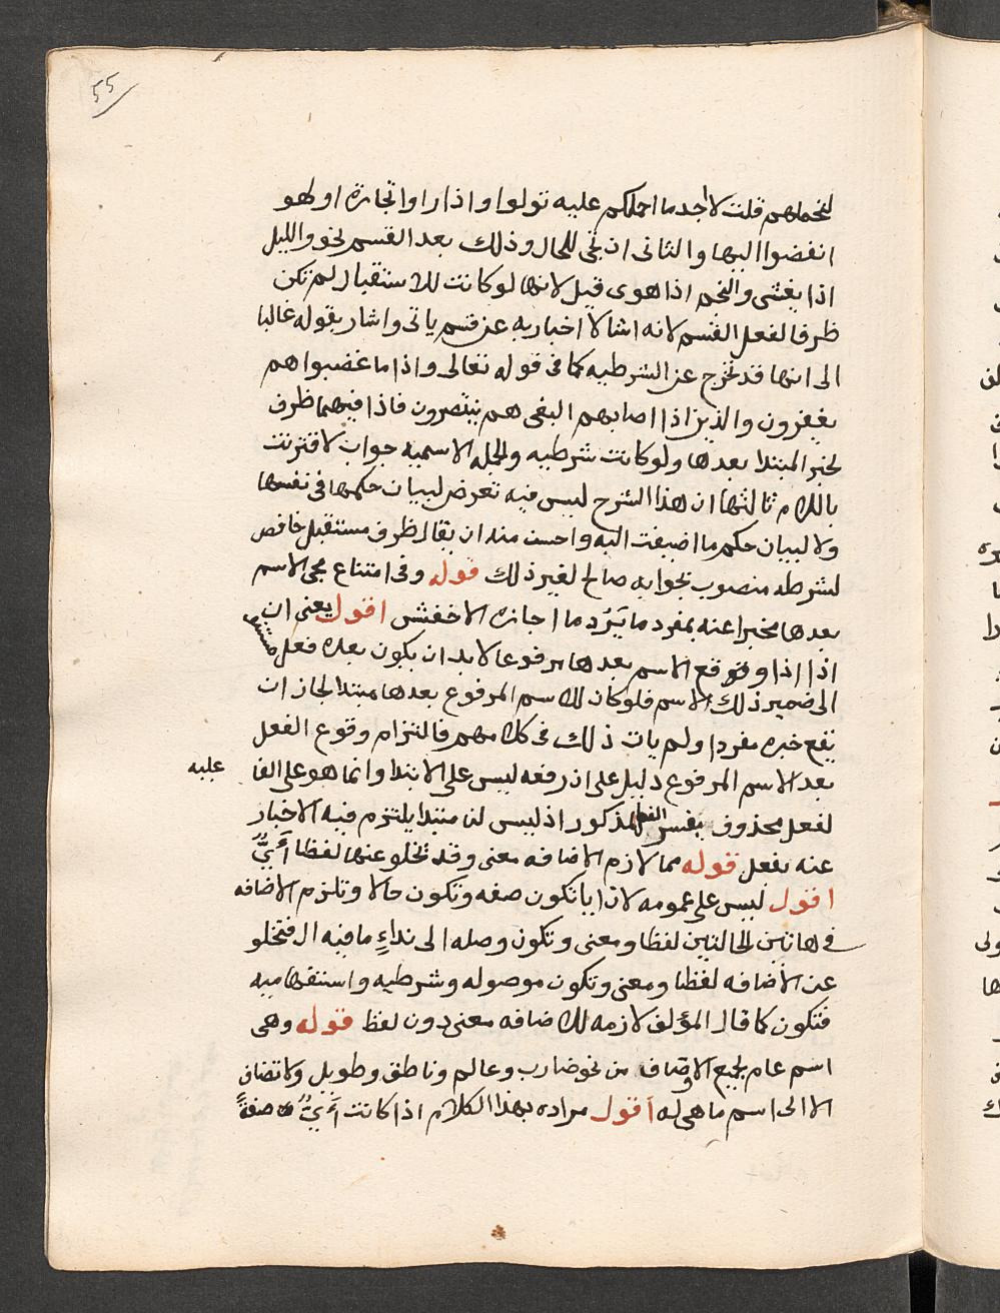 55
لتحملهم قلت لا اجد ما احملكم عليه تولوا واذا راوا تجارة او لهو
انفضوا اليها والثانى ان تجى للحال وذلك بعد القسم نحو والليل
اذا يغشى والنجم اذا هوى قيل لانها لو كانت للاستقبال لم تكن
ظرفا لفعل القسم لانه انشا لا اخبار به عن قسم ياتى واشار بقوله غالبا
الى انها قد تخرج عن الشرطيه كما فى قوله تعالى واذا ما غضبوا هم
يغفرون والذين اذا اصابهم البغى هم ينتصرون فاذا فيهما ظرف
لخبر المبتدا بعدها ولو كانت شرطيه والجمله الاسميه جواب لاقترنت
بالفا ثالثها ان هذا الشرح ليس فيه تعرض لبيان حكمها فى نفسها
ولا لبيان حكم ما اضيفت اليه واحسن منه ان يقال ظرف مستقبل خافض
لشرطه منصوب بجوابه صالح لغير ذلك قوله وفى امتناع مجى الاسم
بعدها مخبرا عنه بمفرد ما يَرُد ما اجازه الاخفش اقول يعنى ان
اذا اذا وقع الاسم بعدها مرفوعا لابد ان يكون بعده فعل مستند
الى ضمير ذلك الاسم فلو كان للاسم المرفوع بعدها مبتدا لجاز ان
يقع خبره مفردا ولم يات ذلك فى كلامهم فالتزام وقوع الفعل
بعد الاسم المرفوع دليل على ان رفعه ليس على الابتدا وانما هو على الفا عليه
لفعل محذوف يفسره الفعل المذكور اذ ليس لنا مبتدا يلتزم فيه الاخبار
عنه بفعل قوله مما لازم الاضافه معنى وقد تخلو عنها لفظا أَيٌّ
اقول ليس على عمومه لان ايا تكون صفه وتكون حالا وتلزم الاضافه
فى هاتين الحالتين لفظا ومعنى وتكون وصله الى نداءِ ما فيه ال فتخلو
عن الاضافه لفظا ومعنى وتكون موصوله وشرطيه واستفهاميه
فتكون كما قال المؤلف لازمه للاضافه معنى دون لفظ قوله وهى
اسم عام لجميع الاوصاف من نحو ضارب وعالم وناطق وطويل ولا تضاف
الا الى اسم ما هى له اقول مراده بهذا الكلام اذا كانت أَيٌّ صفةً